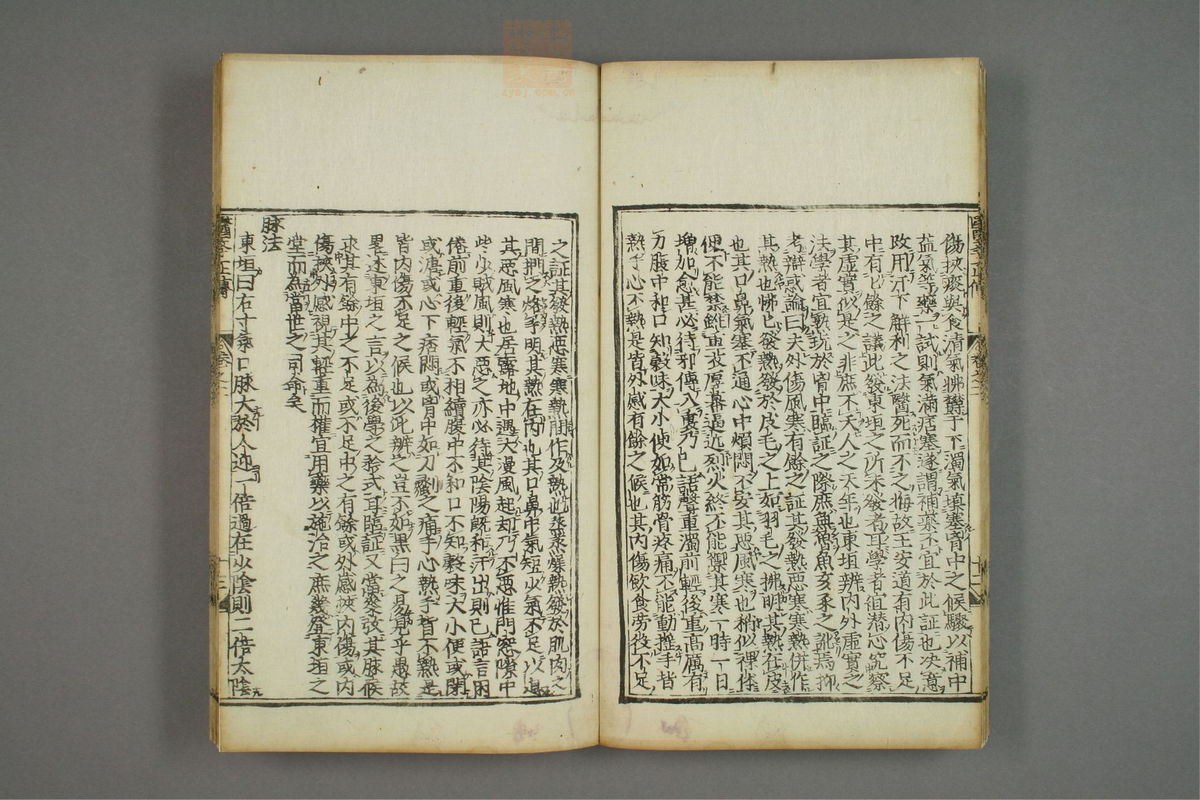 傷挾痰與食清氣怫欝于下濁氣填塞胷中之候驟以補中
益氣等藥一試則氣滿痞塞遂謂補藥不宜於此証也决意
攻用汗下解利之法醫死而不之悔故王安道有内傷不足
中有有餘之議此發東垣之所未發者耳學者宜潜心究察
其虚實似是之非庶不夭人之天年也東垣辨内外虚實之
法學者宜熟玩於胷中臨証之際庶無魯魚亥豕之訛焉抑
考辯惑論曰夫外傷風寒有餘之証其發熱惡寒寒熱併作
其熱也怫怫發熱發於皮毛之上如羽毛之拂明其熱在皮
也其口鼻氣塞不通心中煩悶不安其惡風寒也稍似裸体
便不能禁雖重衣厚幕逼近烈火終不能禦其寒一時一日
増加愈甚必待邪傳入裏乃已語聲重濁前輕後重高厲有
力脹中和口知穀味大小便如常筋骨疼痛不能動揺手背
熱手心不熱是皆外感有餘之候也其内傷飲食労役不足
之証其發熱惡寒寒熱間作及熱也蒸蒸燥熱發於肌肉之
間捫之烙手明其熱在内也其口鼻中氣短少氣不足以息
其惡風寒也居露地中遇大漫風起却乃不惡惟門窓隙中
些少賊風則大惡之亦必待其陰陽既和汗出則已語言困
倦前重後輕氣不相續腹中不和口不知穀味大小便或閉
或溏或心下痞悶或胷中如刀劙之痛手心熱手背不熱是
皆内傷不足之候也以此辨之豈不如黒白之易見乎愚故
畧述東垣之言以為後學之矜式耳臨証又當參該其脉候
求其有餘中之不足或不足中之有餘或外感挾内傷或内
傷挾外感視其輕重而權宜用藥以施治之庶幾登東垣之
堂而為當世之司命矣
脉法
東垣曰右寸氣口脉大於人迎一倍過在少陰則二倍太陰
醫學正傳
卷之二
十二
醫學正傳
卷之二
十三